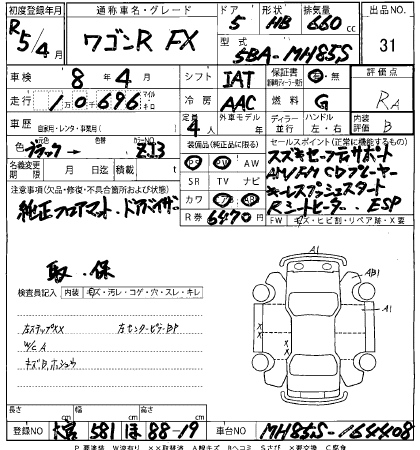 初度登録年月 通称車名・グレード ドア 形状 排気量 出品NO.
R5/4月 ワゴンR FX 5 HB 660cc 31
型式 5BA-MH85S
車検 8年4月 シフト IAT 保証書 有・無 評価点 RA
走行 10,696 マイル キロ 冷房 AAC 燃料 G
車歴 自家用・レンタ・事業用( ) 定員 4人 外車モデル 年 ディーラー 並行 ハンドル 左・右 内装評価 B
色 ブラック→ 色替 カラーNO. ZJ3
装備品(純正品に限る) セールスポイント(正常に機能するもの)
名義変更期限 月 日 積載 t
PS PW AW
SR TV ナビ
カワ エアB ABS
R券 6470円
スズキセーフティサポート
AM/FM CDプレーヤー
キーレスプッシュスタート
Rシートヒーター. ESP
注意事項(欠品・修復・不具合箇所および状態)
純正フロアマット. ドアバイザー
FW キズ・ヒビ割・リペア跡・X要
取.保
検査員記入 内装 キズ・汚レ・コゲ・穴・スレ・キレ
左ステップXX 左センターピラーBP
W/C A
キズB.ホショウ
A1
AB1
A1
X
X
長さ cm 幅 cm 高さ cm
登録NO 大宮 581 ほ 88-19 車台NO MH85S-164408
P 要塗装 W波有り XX取替済 A線キズ Bヘコミ Sさび X要交換 C腐食